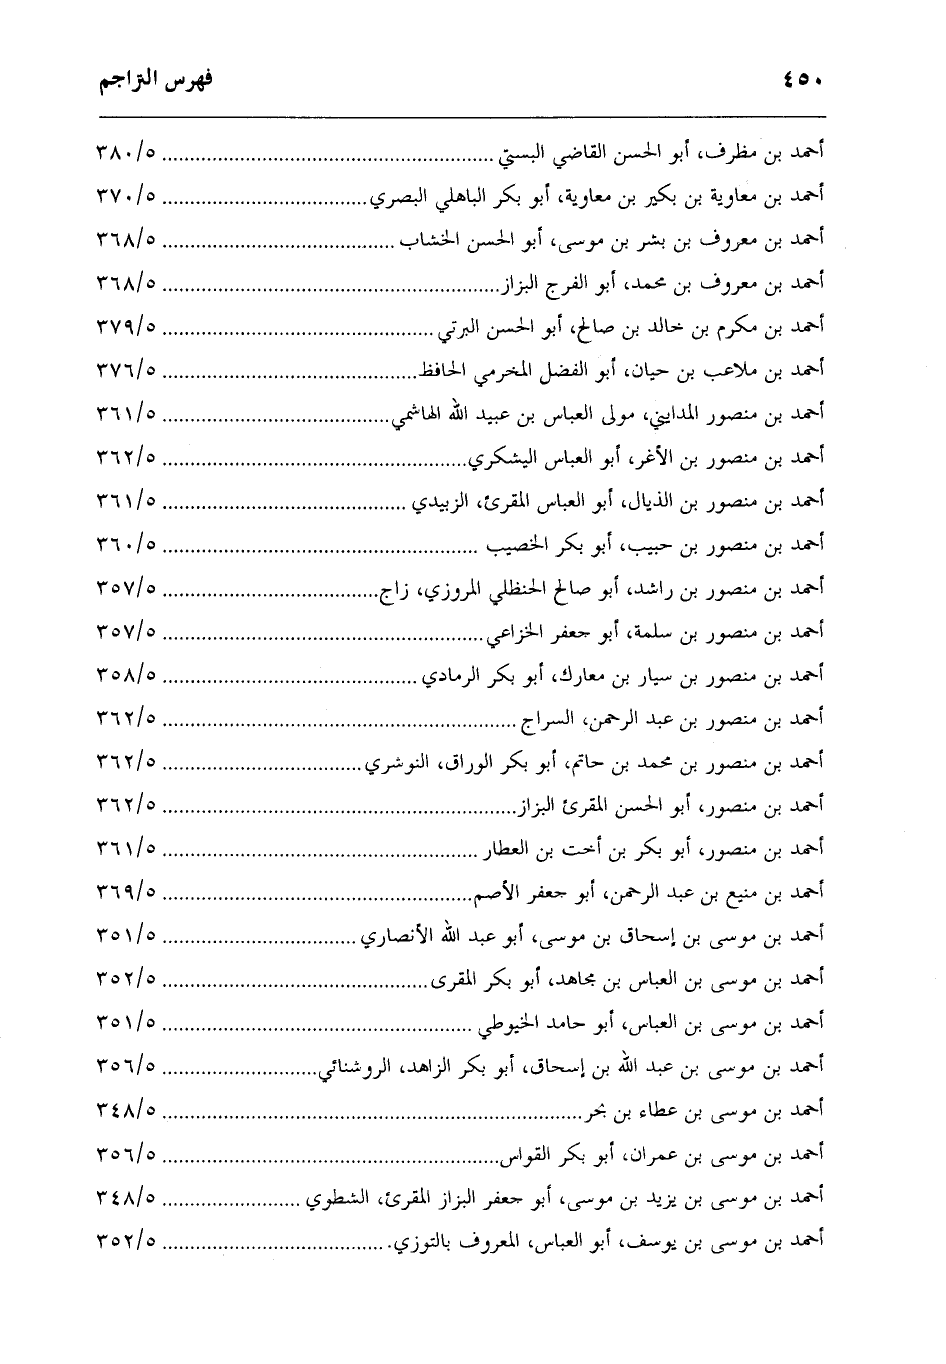 ٤٥٠ فهرس التراجم
أحمد بن مظرف، أبو الحسن القاضي البستيّ ........ ٣٨٠/٥
أحمد بن معاوية بن بكير بن معاوية، أبو بكر الباهلي البصري ........ ٣٧٠/٥
أحمد بن معروف بن بشر بن موسى، أبو الحسن الخشاب ........ ٣٦٨/٥
أحمد بن معروف بن محمد، أبو الفرج البزاز ........ ٣٦٨/٥
أحمد بن مكرم بن خالد بن صالح، أبو الحسن البرتي ........ ٣٧٩/٥
أحمد بن ملاعب بن حيان، أبو الفضل المخرمي الحافظ ........ ٣٧٦/٥
أحمد بن منصور المدايني، مولى العباس بن عبيد الله الهاشمي ........ ٣٦١/٥
أحمد بن منصور بن الأغر، أبو العباس اليشكري ........ ٣٦٢/٥
أحمد بن منصور بن الذيال، أبو العباس المقرئ، الزبيدي ........ ٣٦١/٥
أحمد بن منصور بن حبيب، أبو بكر الخصيب ........ ٣٦٠/٥
أحمد بن منصور بن راشد، أبو صالح الحنظلي المروزي، زاج ........ ٣٥٧/٥
أحمد بن منصور بن سلمة، أبو جعفر الخزاعي ........ ٣٥٧/٥
أحمد بن منصور بن سيار بن معارك، أبو بكر الرمادي ........ ٣٥٨/٥
أحمد بن منصور بن عبد الرحمن، السراج ........ ٣٦٢/٥
أحمد بن منصور بن محمد بن حاتم، أبو بكر الوراق، النوشري ........ ٣٦٢/٥
أحمد بن منصور، أبو الحسن المقرئ البزاز ........ ٣٦٢/٥
أحمد بن منصور، أبو بكر بن أخت بن العطار ........ ٣٦١/٥
أحمد بن منيع بن عبد الرحمن، أبو جعفر الأصم ........ ٣٦٩/٥
أحمد بن موسى بن إسحاق بن موسى، أبو عبد الله الأنصاري ........ ٣٥١/٥
أحمد بن موسى بن العباس بن مجاهد، أبو بكر المقرى ........ ٣٥٢/٥
أحمد بن موسى بن العباس، أبو حامد الخيوطي ........ ٣٥١/٥
أحمد بن موسى بن عبد الله بن إسحاق، أبو بكر الزاهد، الروشنائي ........ ٣٥٦/٥
أحمد بن موسى بن عطاء بن بحر ........ ٣٤٨/٥
أحمد بن موسى بن عمران، أبو بكر القواس ........ ٣٥٦/٥
أحمد بن موسى بن يزيد بن موسى، أبو جعفر البزاز المقرئ، الشطوي ........ ٣٤٨/٥
أحمد بن موسى بن يوسف، أبو العباس، المعروف بالتوزي. ........ ٣٥٢/٥